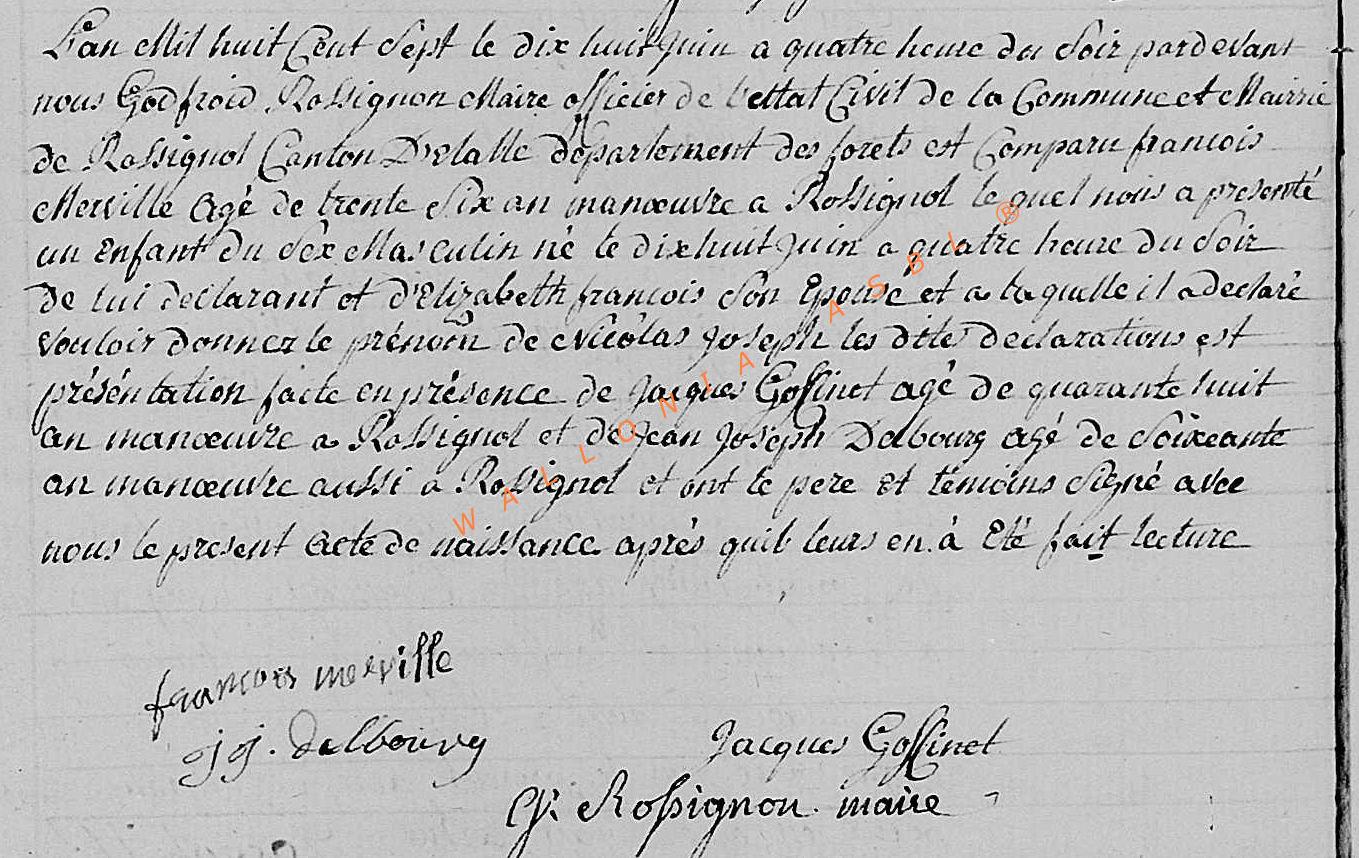 L'an Mil huit Cent Sept le dix huit Juin a quatre heure du Soir pardevant
nous Godfroid Rossignon Maire officier de l'ettat Civil de la Commune et Mairrie
de Rossignol Canton D'Etalle département des forets est Comparu francois
Merville agé de trente Six an manœuvre a Rossignol le quel nous a presenté
un Enfant du Séx Masculin né le dixhuit Juin a quatre heure du Soir
de lui declarant et d'Elizabeth francois Son Epouse et a laquelle il a declaré
vouloir donner le prénom de Nicolas Joseph les dites declarations est
préséntation faite en présence de Jacques Gossinet agé de quarante huit
an manœuvre a Rossignol et de Jean Joseph Delbourg agé de Soixeante
an manœuvre aussi a Rossignol et ont le pere et témoins Signé avec
nous le present acte de naissance après quil leurs en à Eté fait lecture
francois merville
jj. delbourg
Jacques Gossinet
G. Rossignon maire
WALLONIA ASBL ®